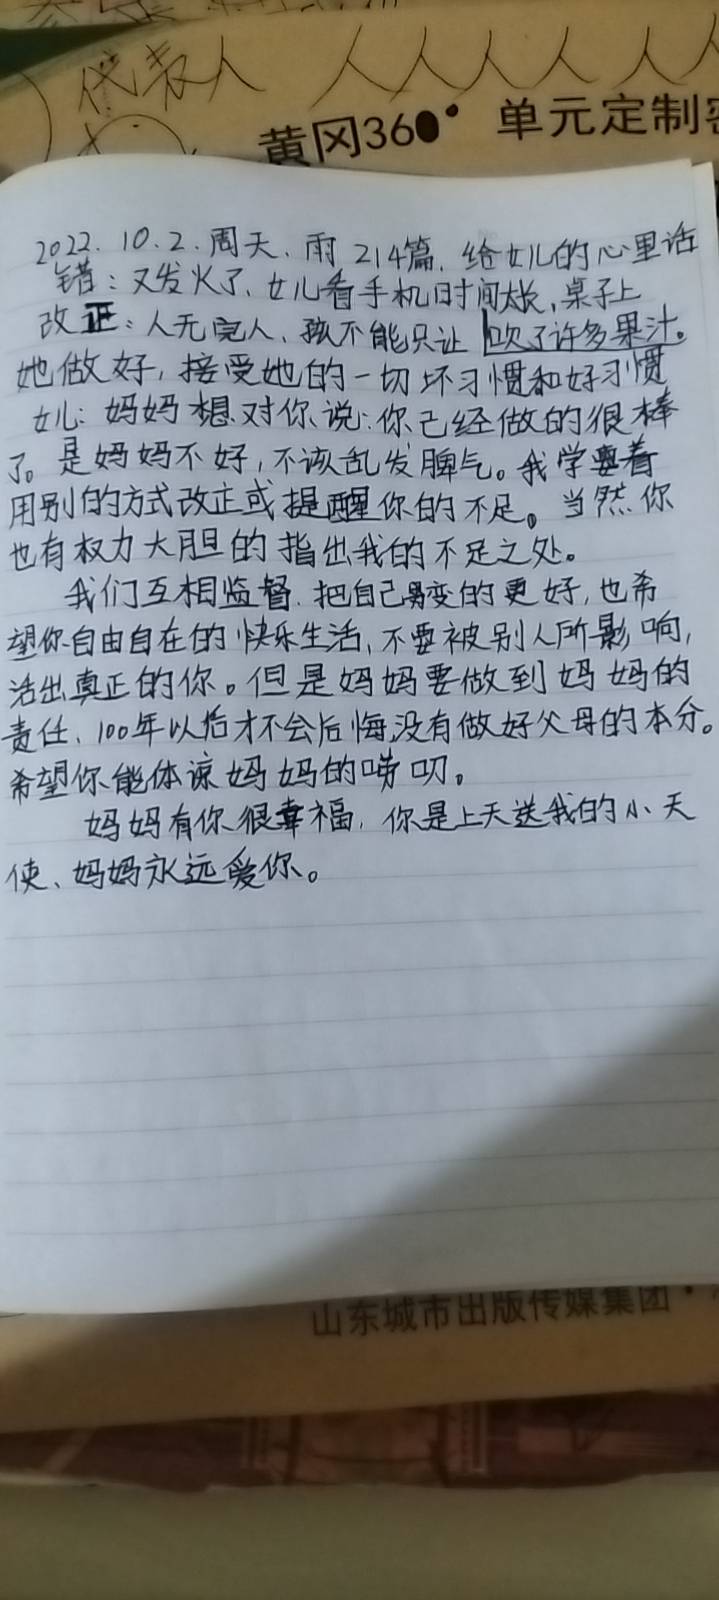 代表人 人人人人人人
黄冈360° 单元定制密
2022.10.2.周天.雨 214篇.给女儿的心里话
错:又发火了、女儿看手机时间太长、桌子上
改正:人无完人、孩不能只让 吹了许多果汁。
她做好,接受她的一切坏习惯和好习惯
女儿:妈妈想对你说:你已经做的很棒
了。是妈妈不好,不该乱发脾气。我学要着
用别的方式改正或提醒你的不足。当然你
也有权力大胆的指出我的不足之处。
我们互相监督.把自己变的更好,也希
望你自由自在的快乐生活,不要被别人所影响,
活出真正的你。但是妈妈要做到妈妈的
责任、100年以后才不会后悔,没有做好父母的本分。
希望你能体谅妈妈的唠叨。
妈妈有你很幸福,你是上天送我的小天
使、妈妈永远爱你。
山东城市出版传媒集团·